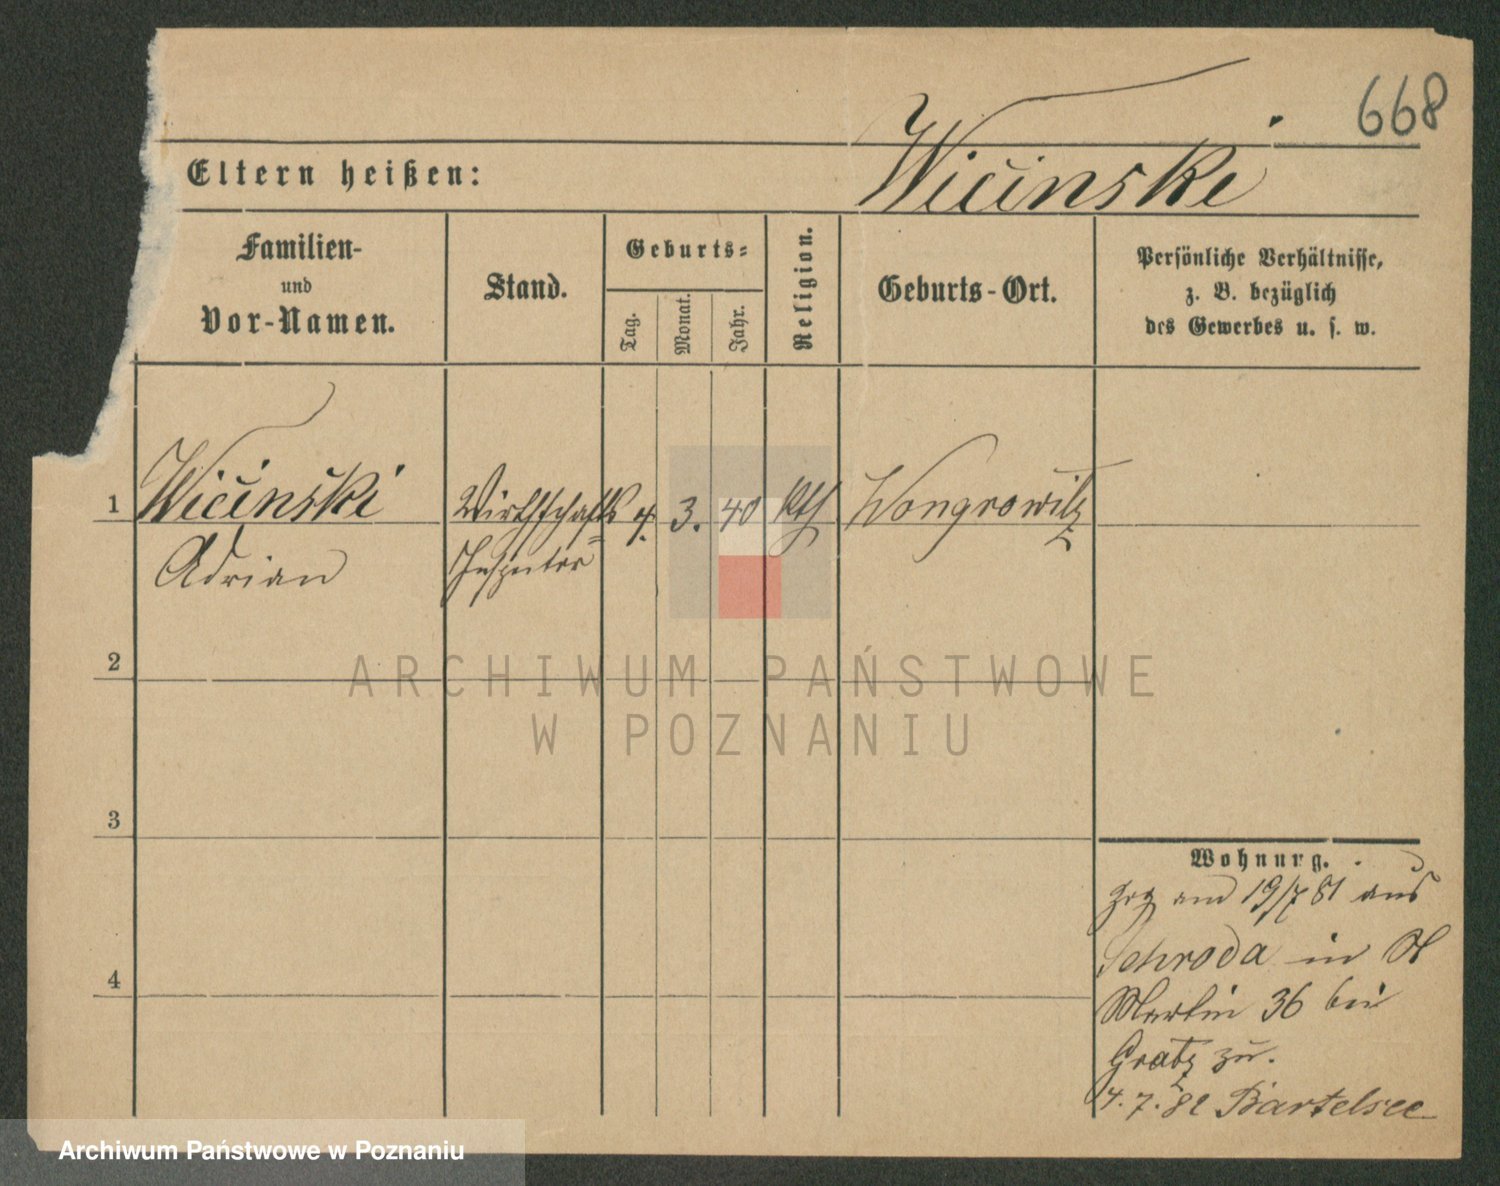 668
Eltern heißen:
Wicinski
Familien-
und
Vor-Namen.
Stand.
Geburts-
Tag.
Monat.
Jahr.
Religion.
Geburts-Ort.
Persönliche Verhältnisse,
z. B. bezüglich
des Gewerbes u. s. w.
1 Wicinski Wirthschafts 4. 3. 40 kth Wongrowitz
Adrian Inspector
2
ARCHIWUM PAŃSTWOWE
W POZNANIU
3
4
Wohnung.
zog am 19/7 81 aus
Schroda in St
Martin 36 bei
Gratz zu.
4.7.82 Bartelsee
Archiwum Państwowe w Poznaniu